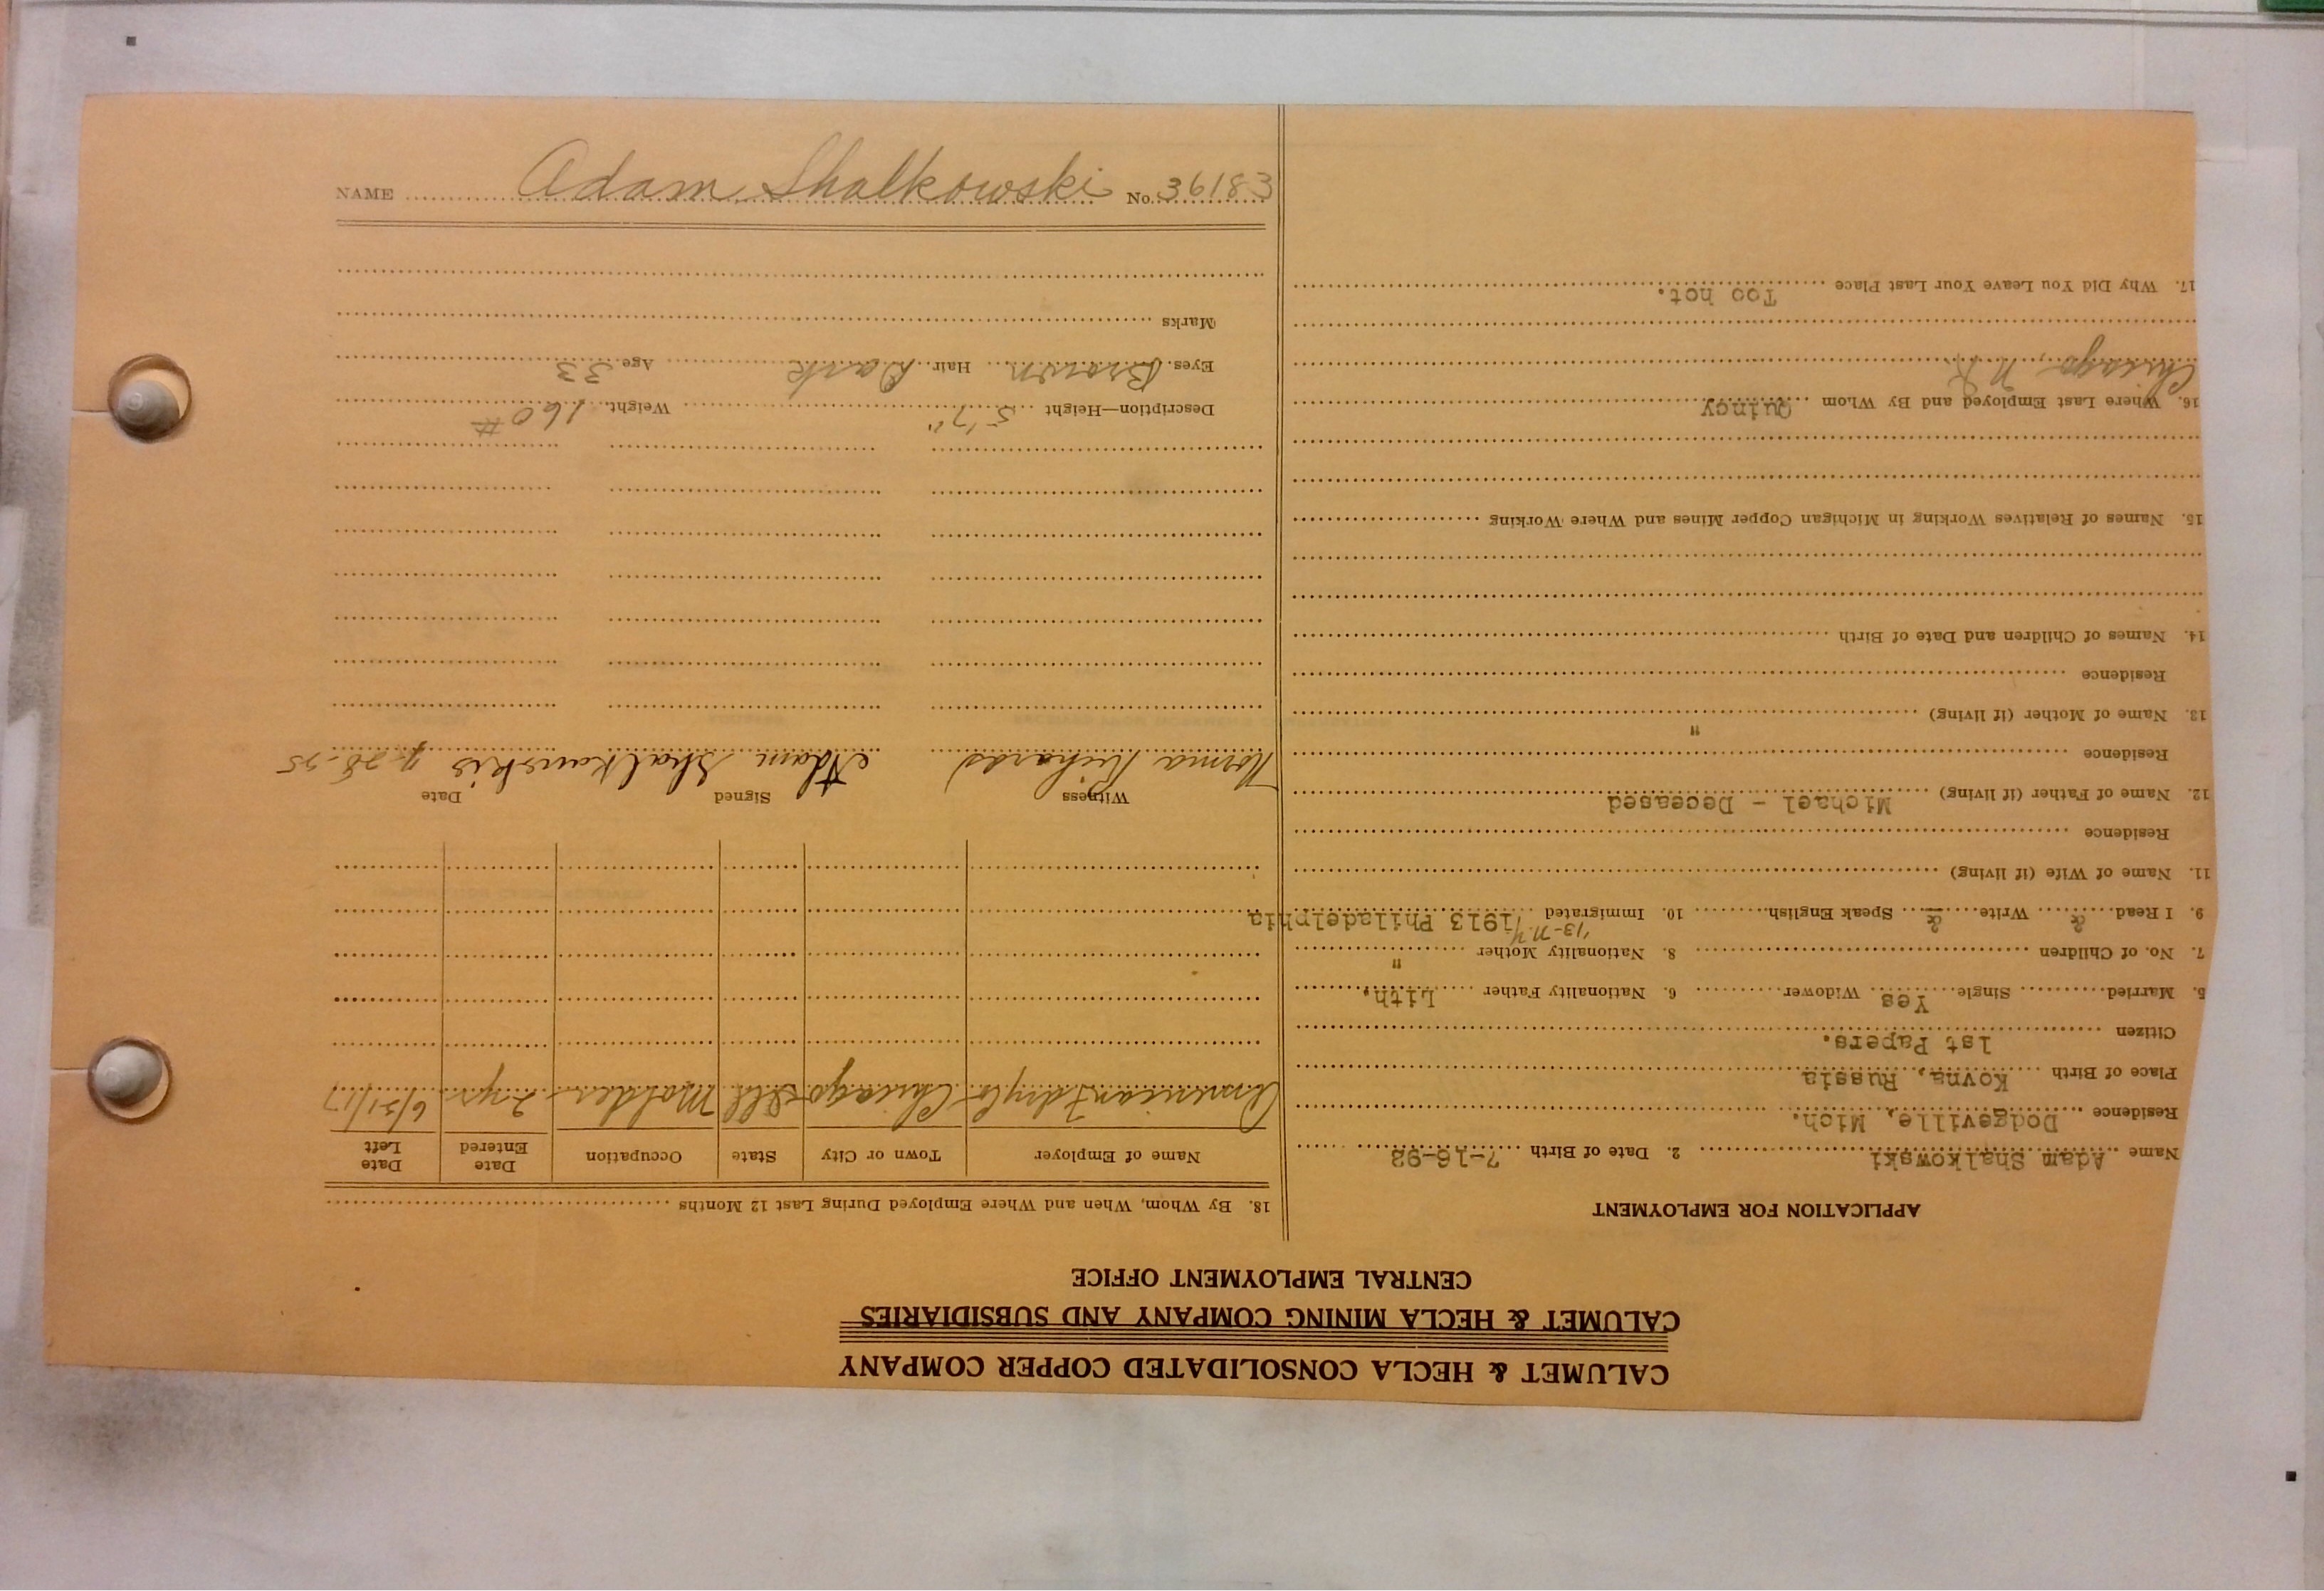 CALUMET & HECLA CONSOLIDATED COPPER COMPANY
CALUMET & HECLA MINING COMPANY AND SUBSIDIARIES
CENTRAL EMPLOYMENT OFFICE
APPLICATION FOR EMPLOYMENT
Name Adam Shalkowski 2. Date of Birth 7-16-92
Residence Dodgeville, Mich.
Place of Birth Kovna, Russia
Citizen 1st Papers.
5. Married Single Yes Widower 6. Nationality Father Lith.
7. No. of Children 8. Nationality Mother "
'13-N.Y.
9. I Read & Write & Speak English 10. Immigrated 1913 Philadelphia
11. Name of Wife (if living)
Residence
12. Name of Father (if living) Michael - Deceased
Residence
13. Name of Mother (if living) "
Residence
14. Names of Children and Date of Birth
15. Names of Relatives Working in Michigan Copper Mines and Where Working
16. Where Last Employed and By Whom Quincy
Chicago,
17. Why Did You Leave Your Last Place Too hot.
18. By Whom, When and Where Employed During Last 12 Months
Name of Employer Town or City State Occupation Date Entered Date Left
American Chicago Ill Molder 2 yrs 6/21/17
Witness Signed Date
Norma Richards Adam Shalkowskis
Description—Height 5'7" Weight 160 #
Eyes Brown Hair Dark Age 33
Marks
NAME Adam Shalkowski No. 36183